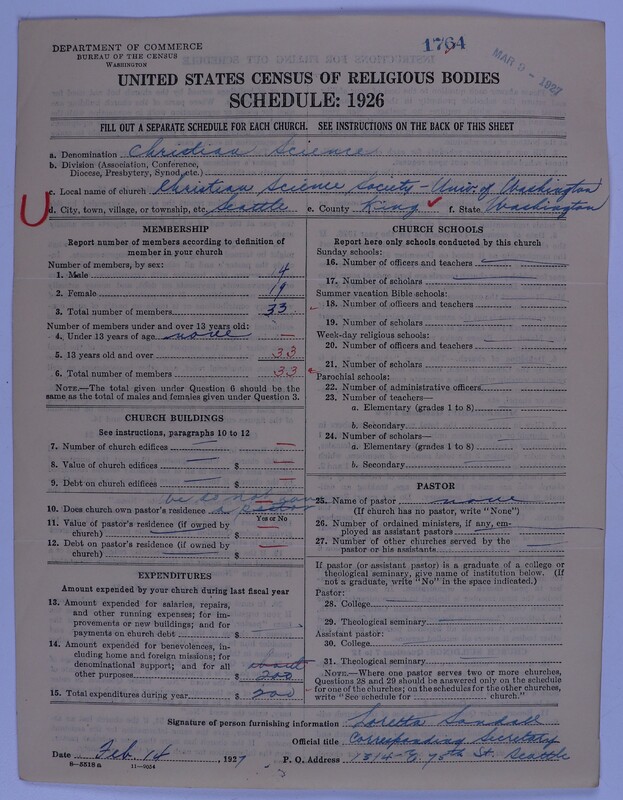 DEPARTMENT OF COMMERCE
BUREAU OF THE CENSUS
WASHINGTON
1764
MAR 9 - 1927
UNITED STATES CENSUS OF RELIGIOUS BODIES
SCHEDULE: 1926
FILL OUT A SEPARATE SCHEDULE FOR EACH CHURCH. SEE INSTRUCTIONS ON THE BACK OF THIS SHEET
a. Denomination Christian Science
b. Division (Association, Conference,
Diocese, Presbytery, Synod, etc.)
c. Local name of church Christian Science Society - Univ. of Washington
d. City, town, village, or township, etc. Seattle e. County King f. State Washington
MEMBERSHIP
Report number of members according to definition of
member in your church
Number of members, by sex:
1. Male 4
2. Female 19
3. Total number of members 33
Number of members under and over 13 years old:
4. Under 13 years of age none —
5. 13 years old and over 33
6. Total number of members 33
NOTE.—The total given under Question 6 should be the
same as the total of males and females given under Question 3.
CHURCH BUILDINGS
See instructions, paragraphs 10 to 12
7. Number of church edifices —
8. Value of church edifices $ —
9. Debt on church edifices $ —
we do not own
10. Does church own pastor's residence a pastor
Yes or No
11. Value of pastor's residence (if owned by
church) $ —
12. Debt on pastor's residence (if owned by
church) $ —
EXPENDITURES
Amount expended by your church during last fiscal year
13. Amount expended for salaries, repairs,
and other running expenses; for im-
provements or new buildings; and for
payments on church debt $ —
14. Amount expended for benevolences, in-
cluding home and foreign missions; for
denominational support; and for all
other purposes $ about 200
15. Total expenditures during year $ 200
CHURCH SCHOOLS
Report here only schools conducted by this church
Sunday schools:
16. Number of officers and teachers —
17. Number of scholars —
Summer vacation Bible schools:
18. Number of officers and teachers —
19. Number of scholars —
Week-day religious schools:
20. Number of officers and teachers —
21. Number of scholars —
Parochial schools:
22. Number of administrative officers —
23. Number of teachers—
a. Elementary (grades 1 to 8) —
b. Secondary —
24. Number of scholars—
a. Elementary (grades 1 to 8) —
b. Secondary —
PASTOR
25. Name of pastor none
(If church has no pastor, write "None")
26. Number of ordained ministers, if any, em-
ployed as assistant pastors —
27. Number of other churches served by the
pastor or his assistants —
If pastor (or assistant pastor) is a graduate of a college or
theological seminary, give name of institution below. (If
not a graduate, write "No" in the space indicated.)
Pastor:
28. College —
29. Theological seminary —
Assistant pastor:
30. College —
31. Theological seminary —
NOTE.—Where one pastor serves two or more churches,
Questions 28 and 29 should be answered only on the schedule
for one of the churches; on the schedules for the other churches,
write "See schedule for church."
Signature of person furnishing information Loretta
Official title Corresponding Secretary
Date Feb. 14, 1927 P. O. Address 1314-E. 75th St. Seattle
8-5518a 11-9054